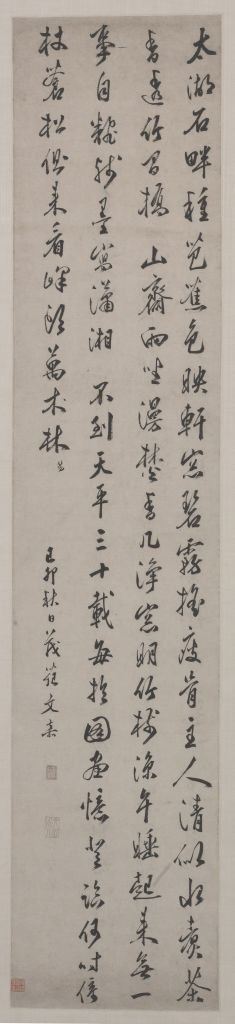 太湖石畔種芭蕉色映軒窗碧霧摇瘦骨主人清似水煮茶
香透竹間橋 山齋雨坐漫焚香几淨窗明竹樹涼午睡起來無一
事自殘墨寫瀟湘 不到天平三十載每於圖畫憶登臨何時倚
杖蒼松側來看峰頭萬木林
己卯秋日茂苑文嘉